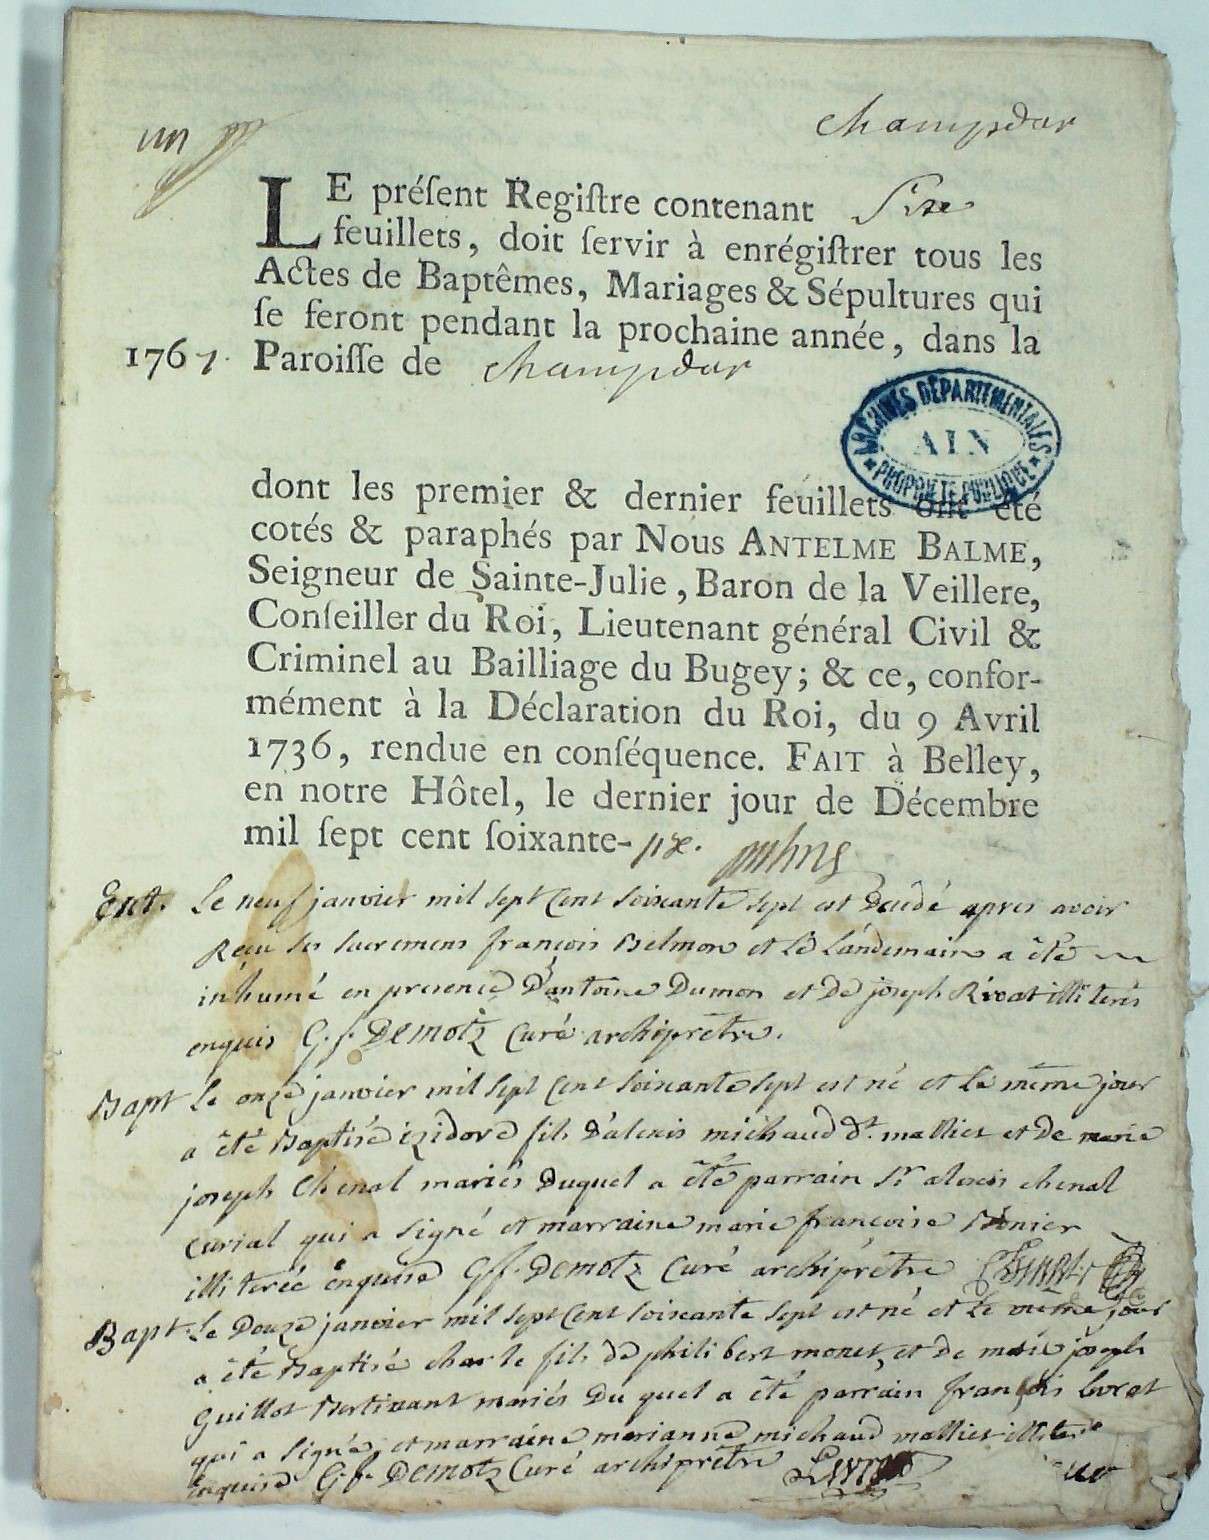 un
champdor
LE préſent Regiſtre contenant Six
feuillets, doit ſervir à enrégiſtrer tous les
Actes de Baptêmes, Mariages & Sépultures qui
ſe feront pendant la prochaine année, dans la
1767. Paroiſſe de champdor
ARCHIVES DÉPARTEMENTALES
AIN
* PROPRIÉTÉ PUBLIQUE *
dont les premier & dernier feuillets ont été
cotés & paraphés par Nous ANTELME BALME,
Seigneur de Sainte-Julie, Baron de la Veillere,
Conſeiller du Roi, Lieutenant général Civil &
Criminel au Bailliage du Bugey; & ce, confor-
mément à la Déclaration du Roi, du 9 Avril
1736, rendue en conſéquence. FAIT à Belley,
en notre Hôtel, le dernier jour de Décembre
mil ſept cent ſoixante-six.
Ent. Le neuf janvier mil sept Cent soixante sept est Decédé apres avoir
Reçu ses sacremens françois Belmon et le landemain a été
inhumé en presence D'antoine Dumon et De joseph Rivat illiterés
enquis G. f. DEMOTZ Curé archiprêtre.
Bapt Le onze janvier mil sept Cent soixante sept est né et le même jour
a été Baptisé izidore fils D'alexis michaud dt. malliet et De marie
joseph Chenal mariés Duquel a été parrain Sr alexis chenal
curial qui a signé et marraine marie françoise Bonier
illiterée enquise G. f. DEMOTZ Curé archiprêtre
Bapt. Le Douze janvier mil sept Cent soixante sept est né et le même jour
a été Baptisé charle fils de philibert monet, et de marie joseph
Guillot Bertinant mariés Du quel a été parrain françois livret
qui a signé, et marraine marianne michaud malliet illiterée
enquise G. f. DEMOTZ Curé archiprêtre